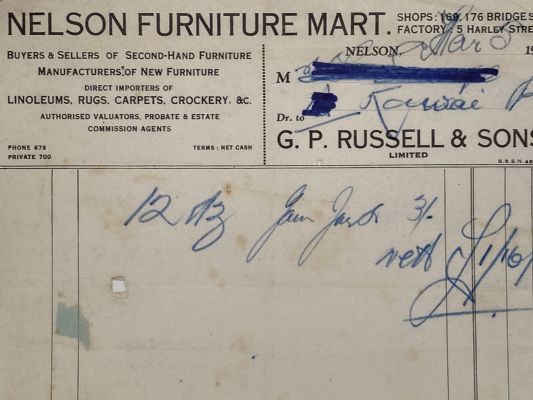 NELSON FURNITURE MART.
SHOPS: 169, 176 BRIDGE S
FACTORY: 5 HARLEY STRE
BUYERS & SELLERS OF SECOND-HAND FURNITURE
MANUFACTURERS OF NEW FURNITURE
DIRECT IMPORTERS OF
LINOLEUMS, RUGS, CARPETS, CROCKERY, &C.
AUTHORISED VALUATORS, PROBATE & ESTATE
COMMISSION AGENTS
PHONE 679
PRIVATE 700
TERMS: NET CASH
NELSON, Mar 5 19
M
Kawai
Dr. to
G. P. RUSSELL & SONS
LIMITED
12 Dz Jam Jars 3/-
nett £1/16/